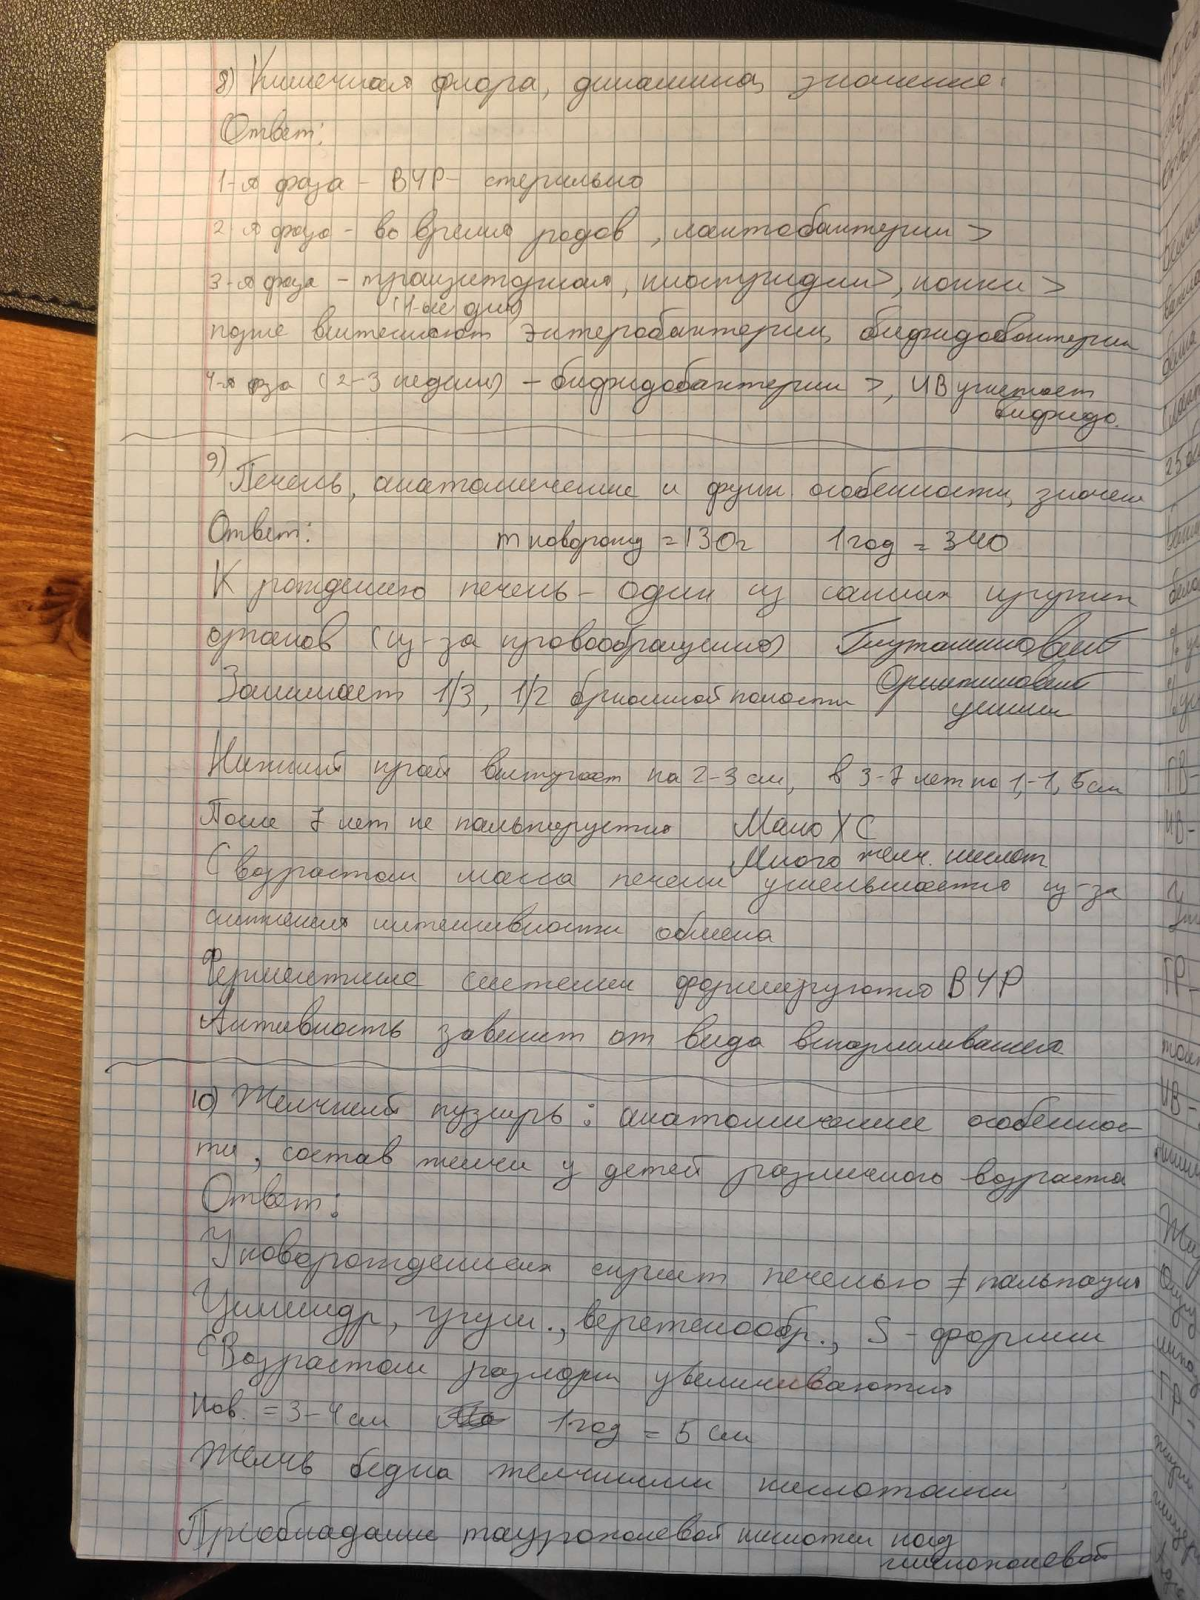 8) Кишечная флора, динамика, значение:
Ответ:
1-я фаза - ВУР - стерильно
2-я фаза - во время родов, лактобактерии >
3-я фаза - транзиторная, клостридии >, кокки >
(1-ые дни)
позже вытесняют энтеробактерии, бифидобактерии
4-я фаза (2-3 недели) - бифидобактерии >, ИВ угнетает
бифидо.
9) Печень, анатомические и функ особенности, значен
Ответ: m новорожд = 130г 1 год = 340
К рождению печень - один из самых крупных
органов (из-за кровообращения) Глутаминовый
Занимает 1/3, 1/2 брюшной полости Орнитиновый
циклы
Нижний край выступает на 2-3 см, в 3-7 лет на 1,-1,5 см
После 7 лет не пальпируется Мало ХС
Много желч. кислот
С возрастом масса печени уменьшается из-за
снижения интенсивности обмена
Ферментные системы формируются ВУР
Активность зависит от вида вскармливания
10) Желчный пузырь: анатомические особеннос-
ти, состав желчи у детей различного возраста
Ответ:
У новорожденных скрыт печенью ≠ пальпация
Цилиндр, груш., веретенообр., S-формы
С Возрастом размеры увеличиваются
Нов. = 3-4 см 1 год = 5 см
Желчь бедна желчными кислотами
Преобладание таурохолевой кислоты над
гликохолевой